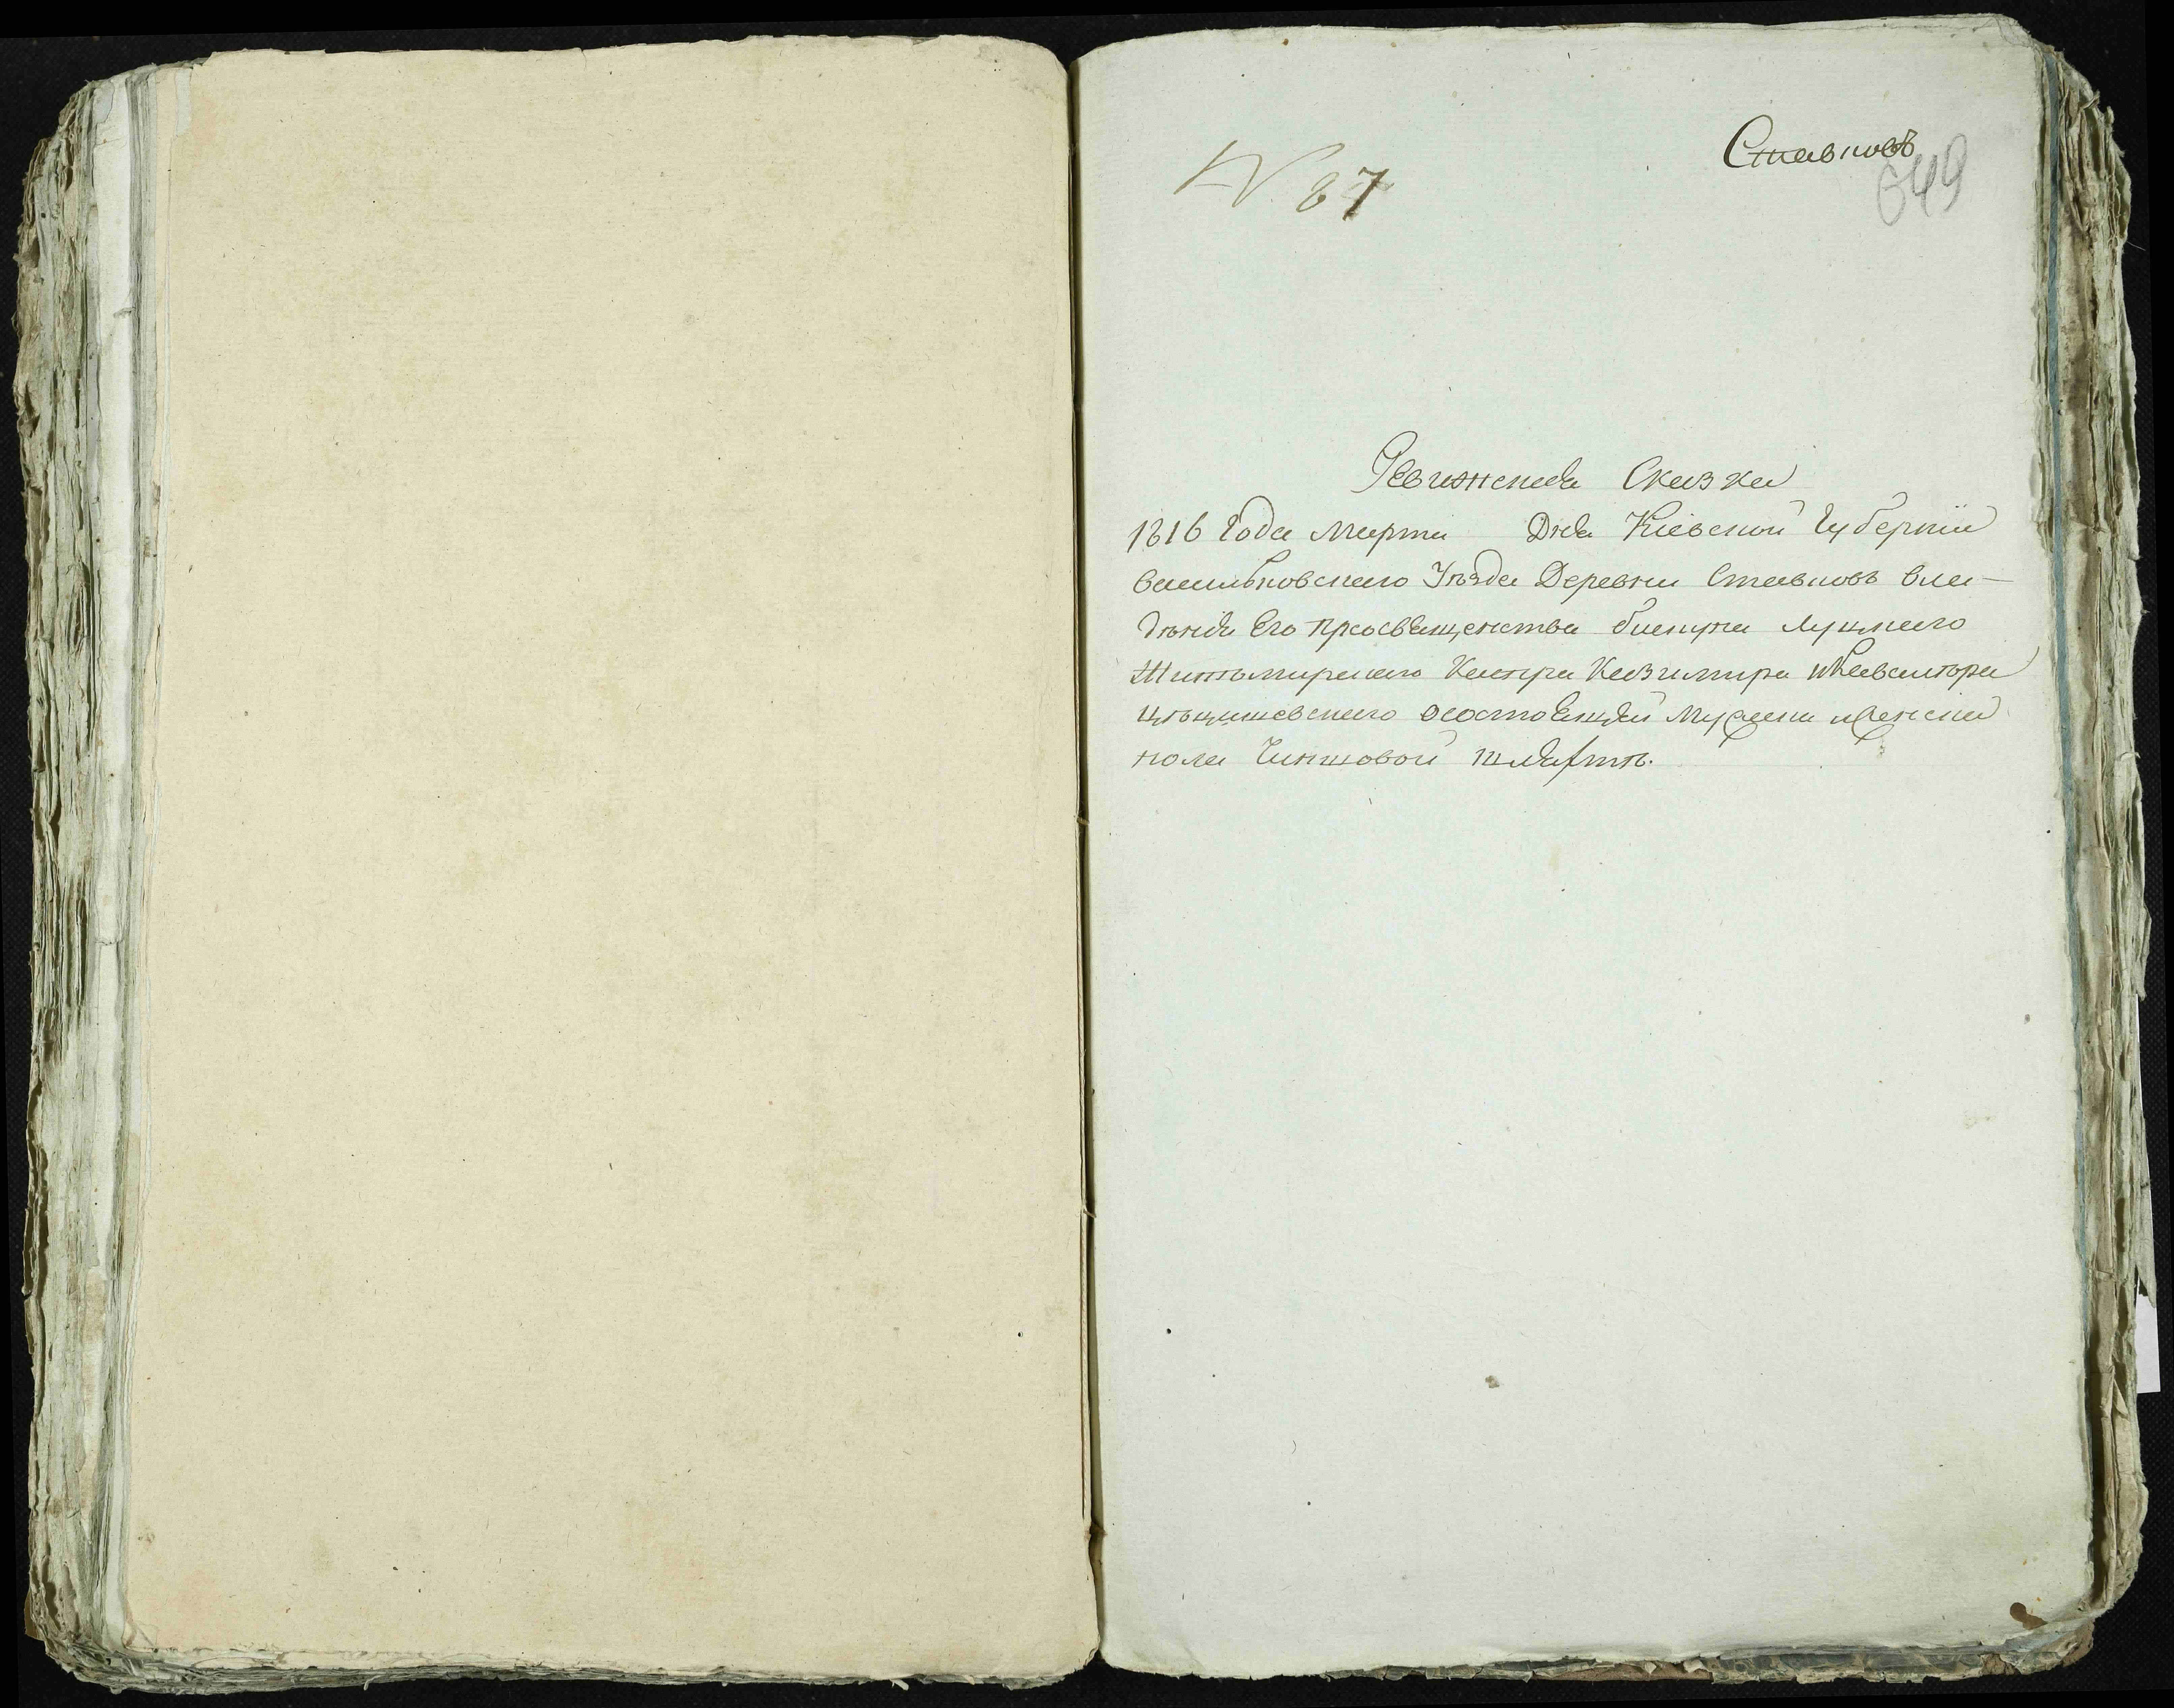 Ставковъ
N 87
649
Ревижская Сказка
1816 Года Марта Дня Кіевской Губерніи
Васильковского Уѣзда Деревни Ставковъ вла-
дѣнія Его преосвященства бискупа Луцкаго
Житомирскаго Каспра Казимира
Цѣцишевскаго осостоящей Мужеска иженска
пола Чиншовой шляхтѣ.